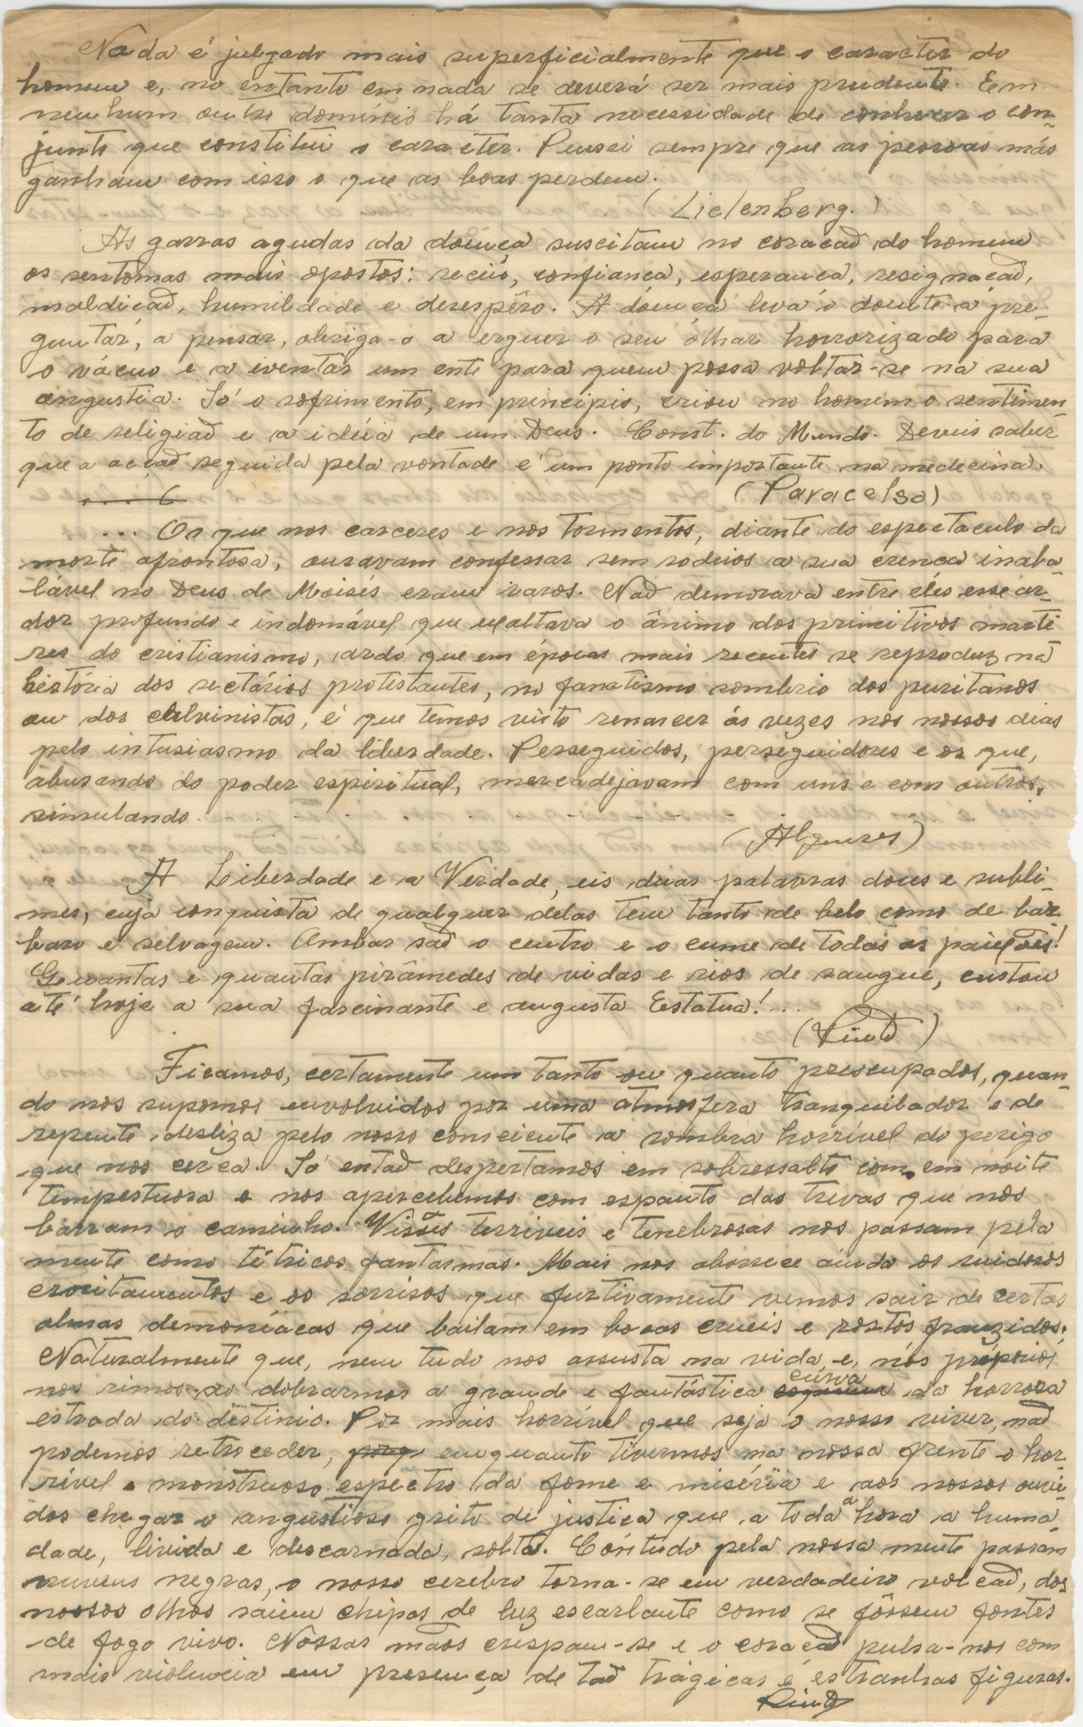 Nada é julgado mais superficialmente que o caracter do
homem e, no entanto em nada se deverá ser mais prudente. Em
nenhum outro domínio há tanta necessidade de conhecer o con-
junto que constitui o caracter. Pensei sempre que as pessoas más
ganham com isso o que as boas perdem.
(Lictenberg.)
As garras agudas da doença suscitam no coracaõ do homem
os sentomas mais opostos: receio, confianca, esperança, resignacaõ,
maldicaõ, humildade e desespêro. A doença leva o doente a pre-
guntár, a pensar, obriga-o a erguer o seu olhar horrorizado para
o vácuo e a iventár um ente para quem possa voltar-se na sua
angustia. Só o sofrimento, em princípio, criou no homem o sentimen-
to de religiaõ e a idéia de um Deus. Const. do Mundo. Deveis saber
que a acçaõ seguida pela vontade é um ponto importante na medecina.
(Paracelso)
... Os que nos carceres e nos tormentos, diante do espectaculo da
morte afrontosa, ousavam confessar sem rodeios a sua crenca inaba-
lável no Deus de Moisés eram raros. Naõ demorava entre éles esse ar-
dor profundo e indomável que exaltava o ânimo dos primitivos marti-
res do cristianismo, ardo que em épocas mais recentes se reproduz na
história dos sectários protestantes, no fanatismo sombrio dos puritanos
ou dos calvinistas, é que temos visto renascer ás vezes nos nossos dias
pelo intusiasmo da liberdade. Perseguidos, perseguidores e os que,
abusando do poder espiritual, mercadejavam com uns e com outros,
simulando . . . . . . . . .
A Liberdade e a Verdade, eis duas palavras doces e subli-
mes, cuja conquista de qualquer délas tem tanto de belo como de bár-
baro e selvagem. Ambas saõ o centro e o cume de todas as paixões!
Quantas e quantas pirâmedes de vidas e rios de sangue, custou
até hoje a sua fascinante e augusta Estatua!...
Ficamos, certamente um tanto ou quanto preocupados, quan-
do nos supomos envolvidos por uma atmosfera tranquilador e de
repente desliza pelo nosso consciente a sombra horrível do perigo
que nos cerca. Só entaõ despertamos em sobressalto com. em noite
tempestuosa e nos apercebemos com espanto das trevas que nos
barram o caminho. Visões terriveis e tenebrosas nos passam pela
mente como tétricos fantasmas. Mais nos aborrece ainda os ruidosos
crocitamentos e os sorrisos que furtivamente vemos sair de certas
almas demoníacas que bailam em bocas crueis e rostos franzidos.
Naturalmente que, nem tudo nos assusta na vida, e, nós próprios
nos rimos ao dobrarmos a grande e fantástica curva da horrosa
estrada do destinio. Por mais horrível que seja o nosso viver, naõ
podemos retroceder, enquanto tivermos na nossa frente o hor-
rivel e monstruoso espectro da fome e miséria e aos nossos ouvi-
dos chegar o angustioso grito de justiça que a toda a hora a huma-
dade, livida e descarnada, solta. Contudo pela nossa mente passam
nuvens negras, o nosso cerebro torna-se em verdadeiro volcaõ, dos
nossos olhos saiem chipas de luz escarlante como se fôssem fontes
de fogo vivo. Nossas mãos crespam-se e o coracaõ pulsa-nos com
mais violencia em presença de taõ trágicas e estranhas figuras.